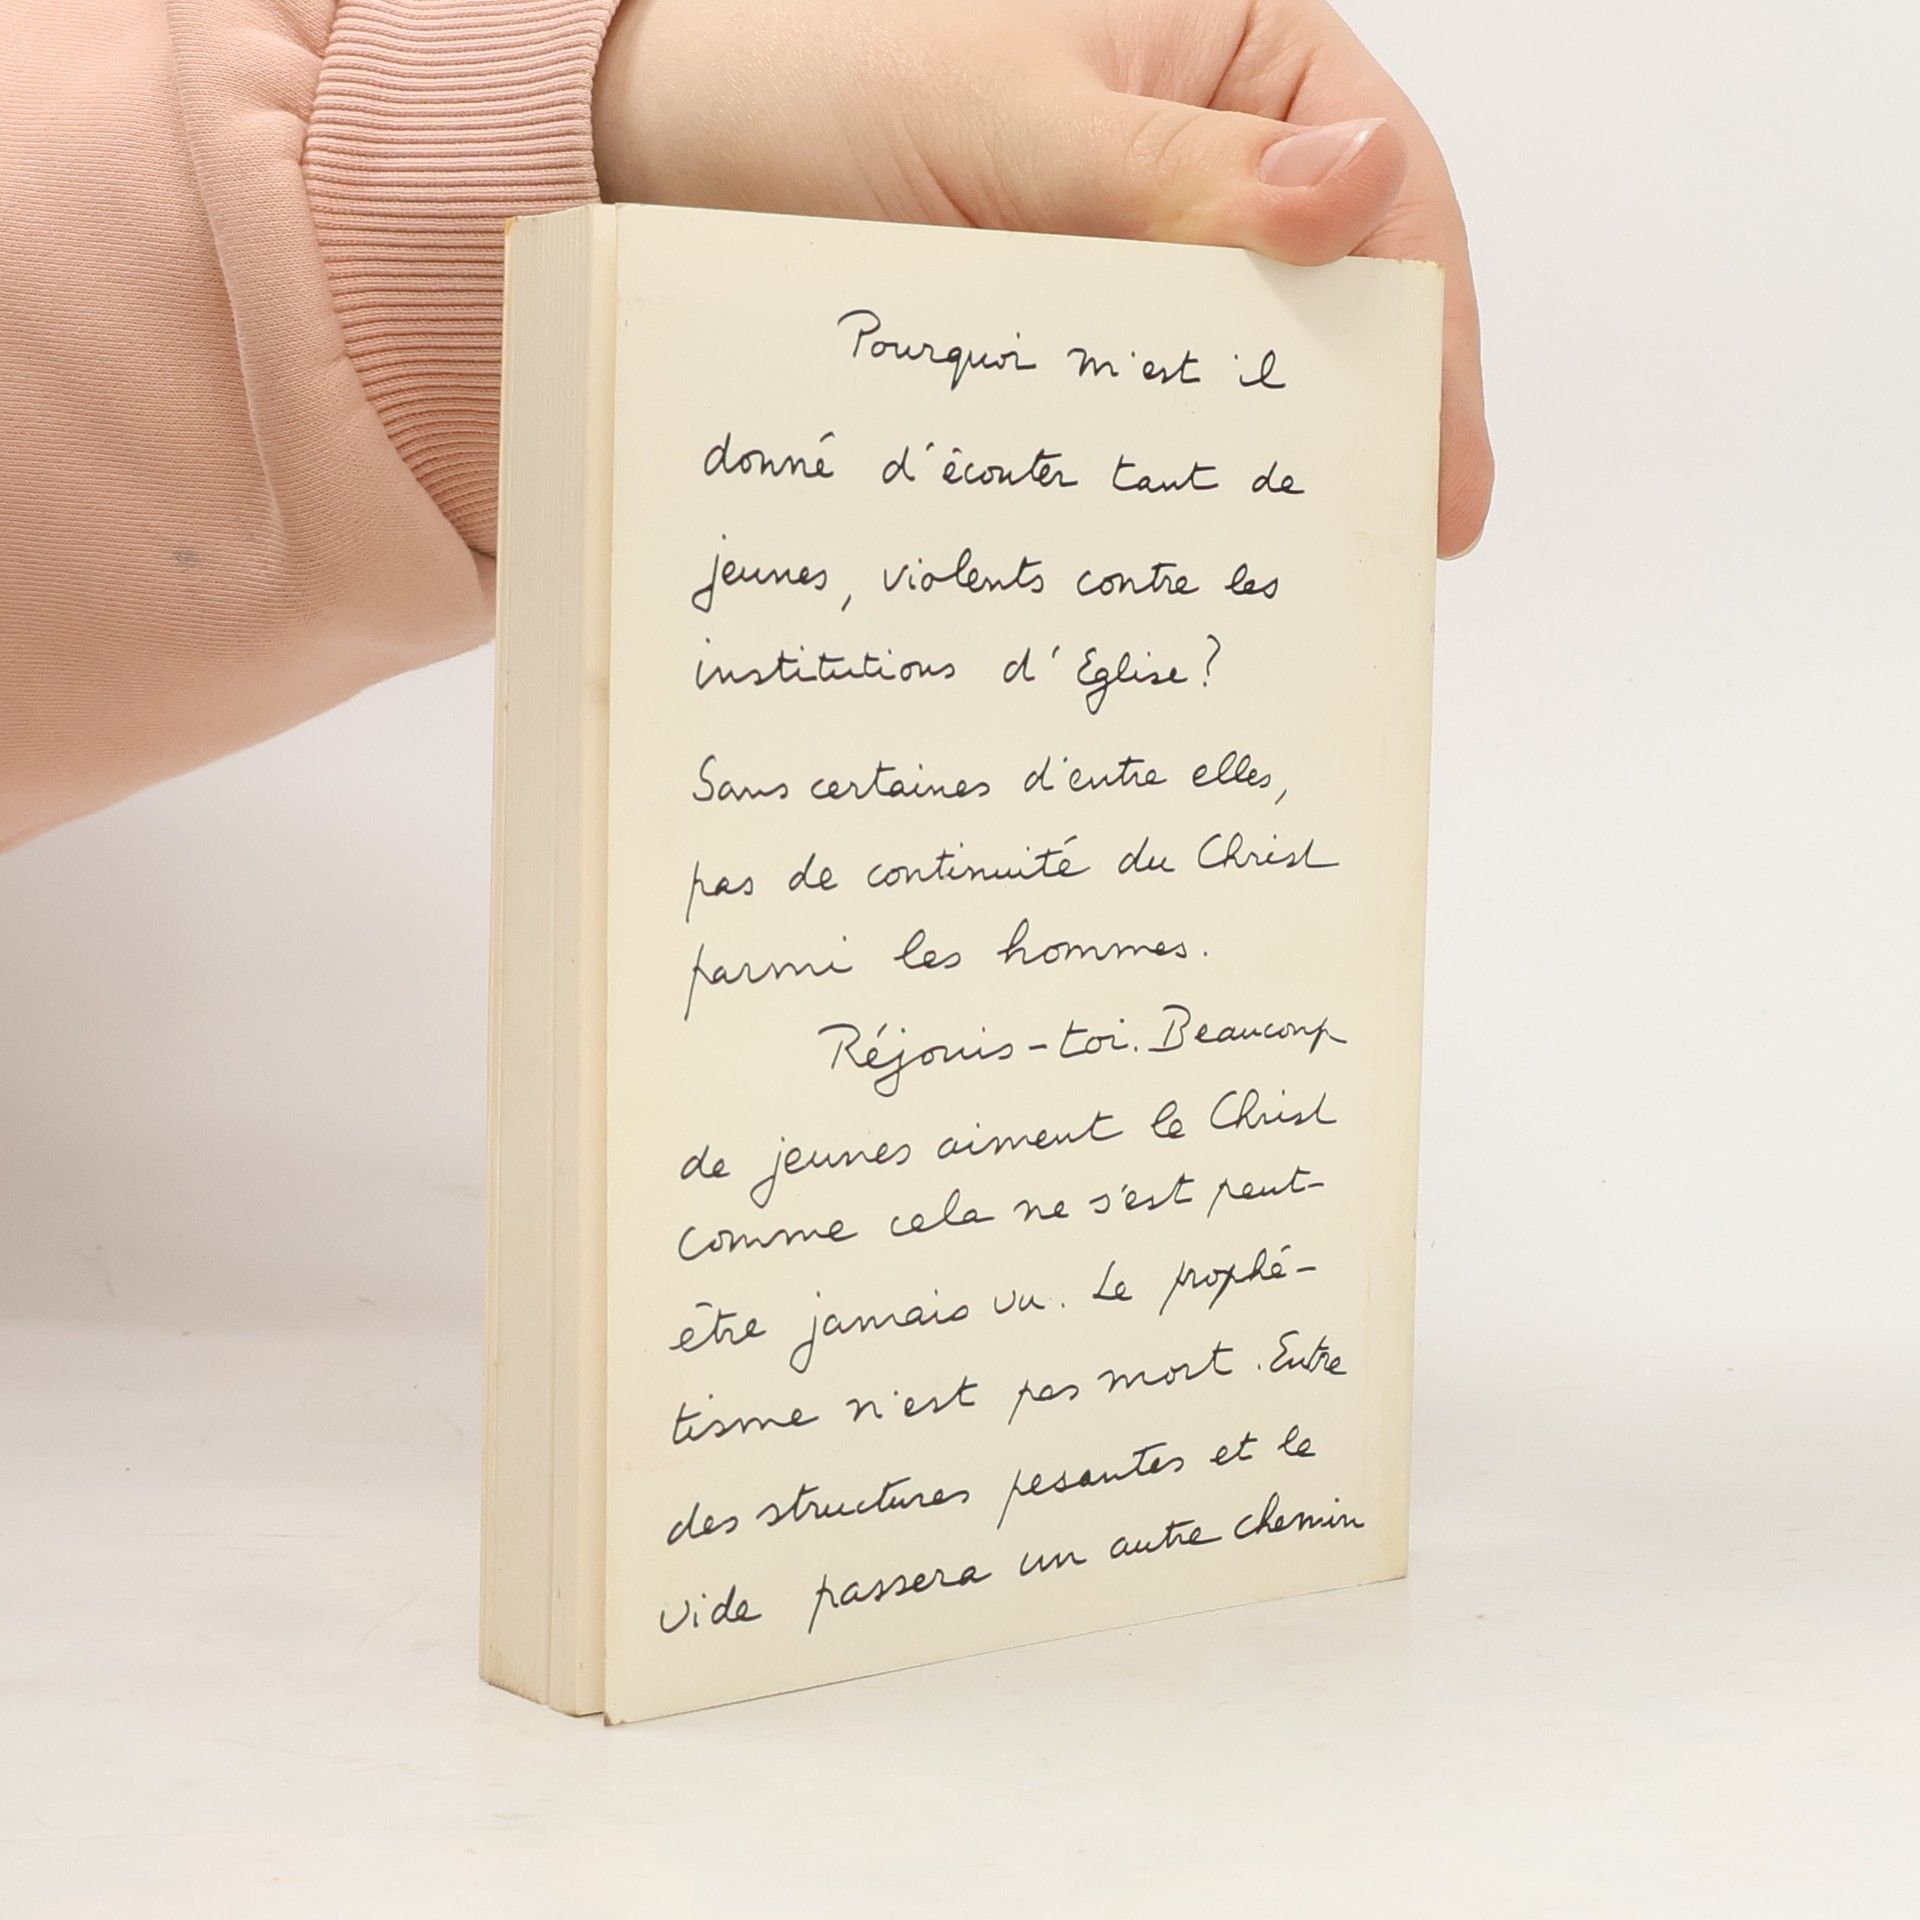 Pourquoi m'est il
donné d'écouter tant de
jeunes, violents contre les
institutions d'Eglise?
Sans certaines d'entre elles,
pas de continuité du Christ
parmi les hommes.
Réjouis-toi. Beaucoup
de jeunes aiment le Christ
comme cela ne s'est peut-
être jamais vu. Le prophé-
tisme n'est pas mort. Entre
des structures pesantes et le
vide passera un autre chemin